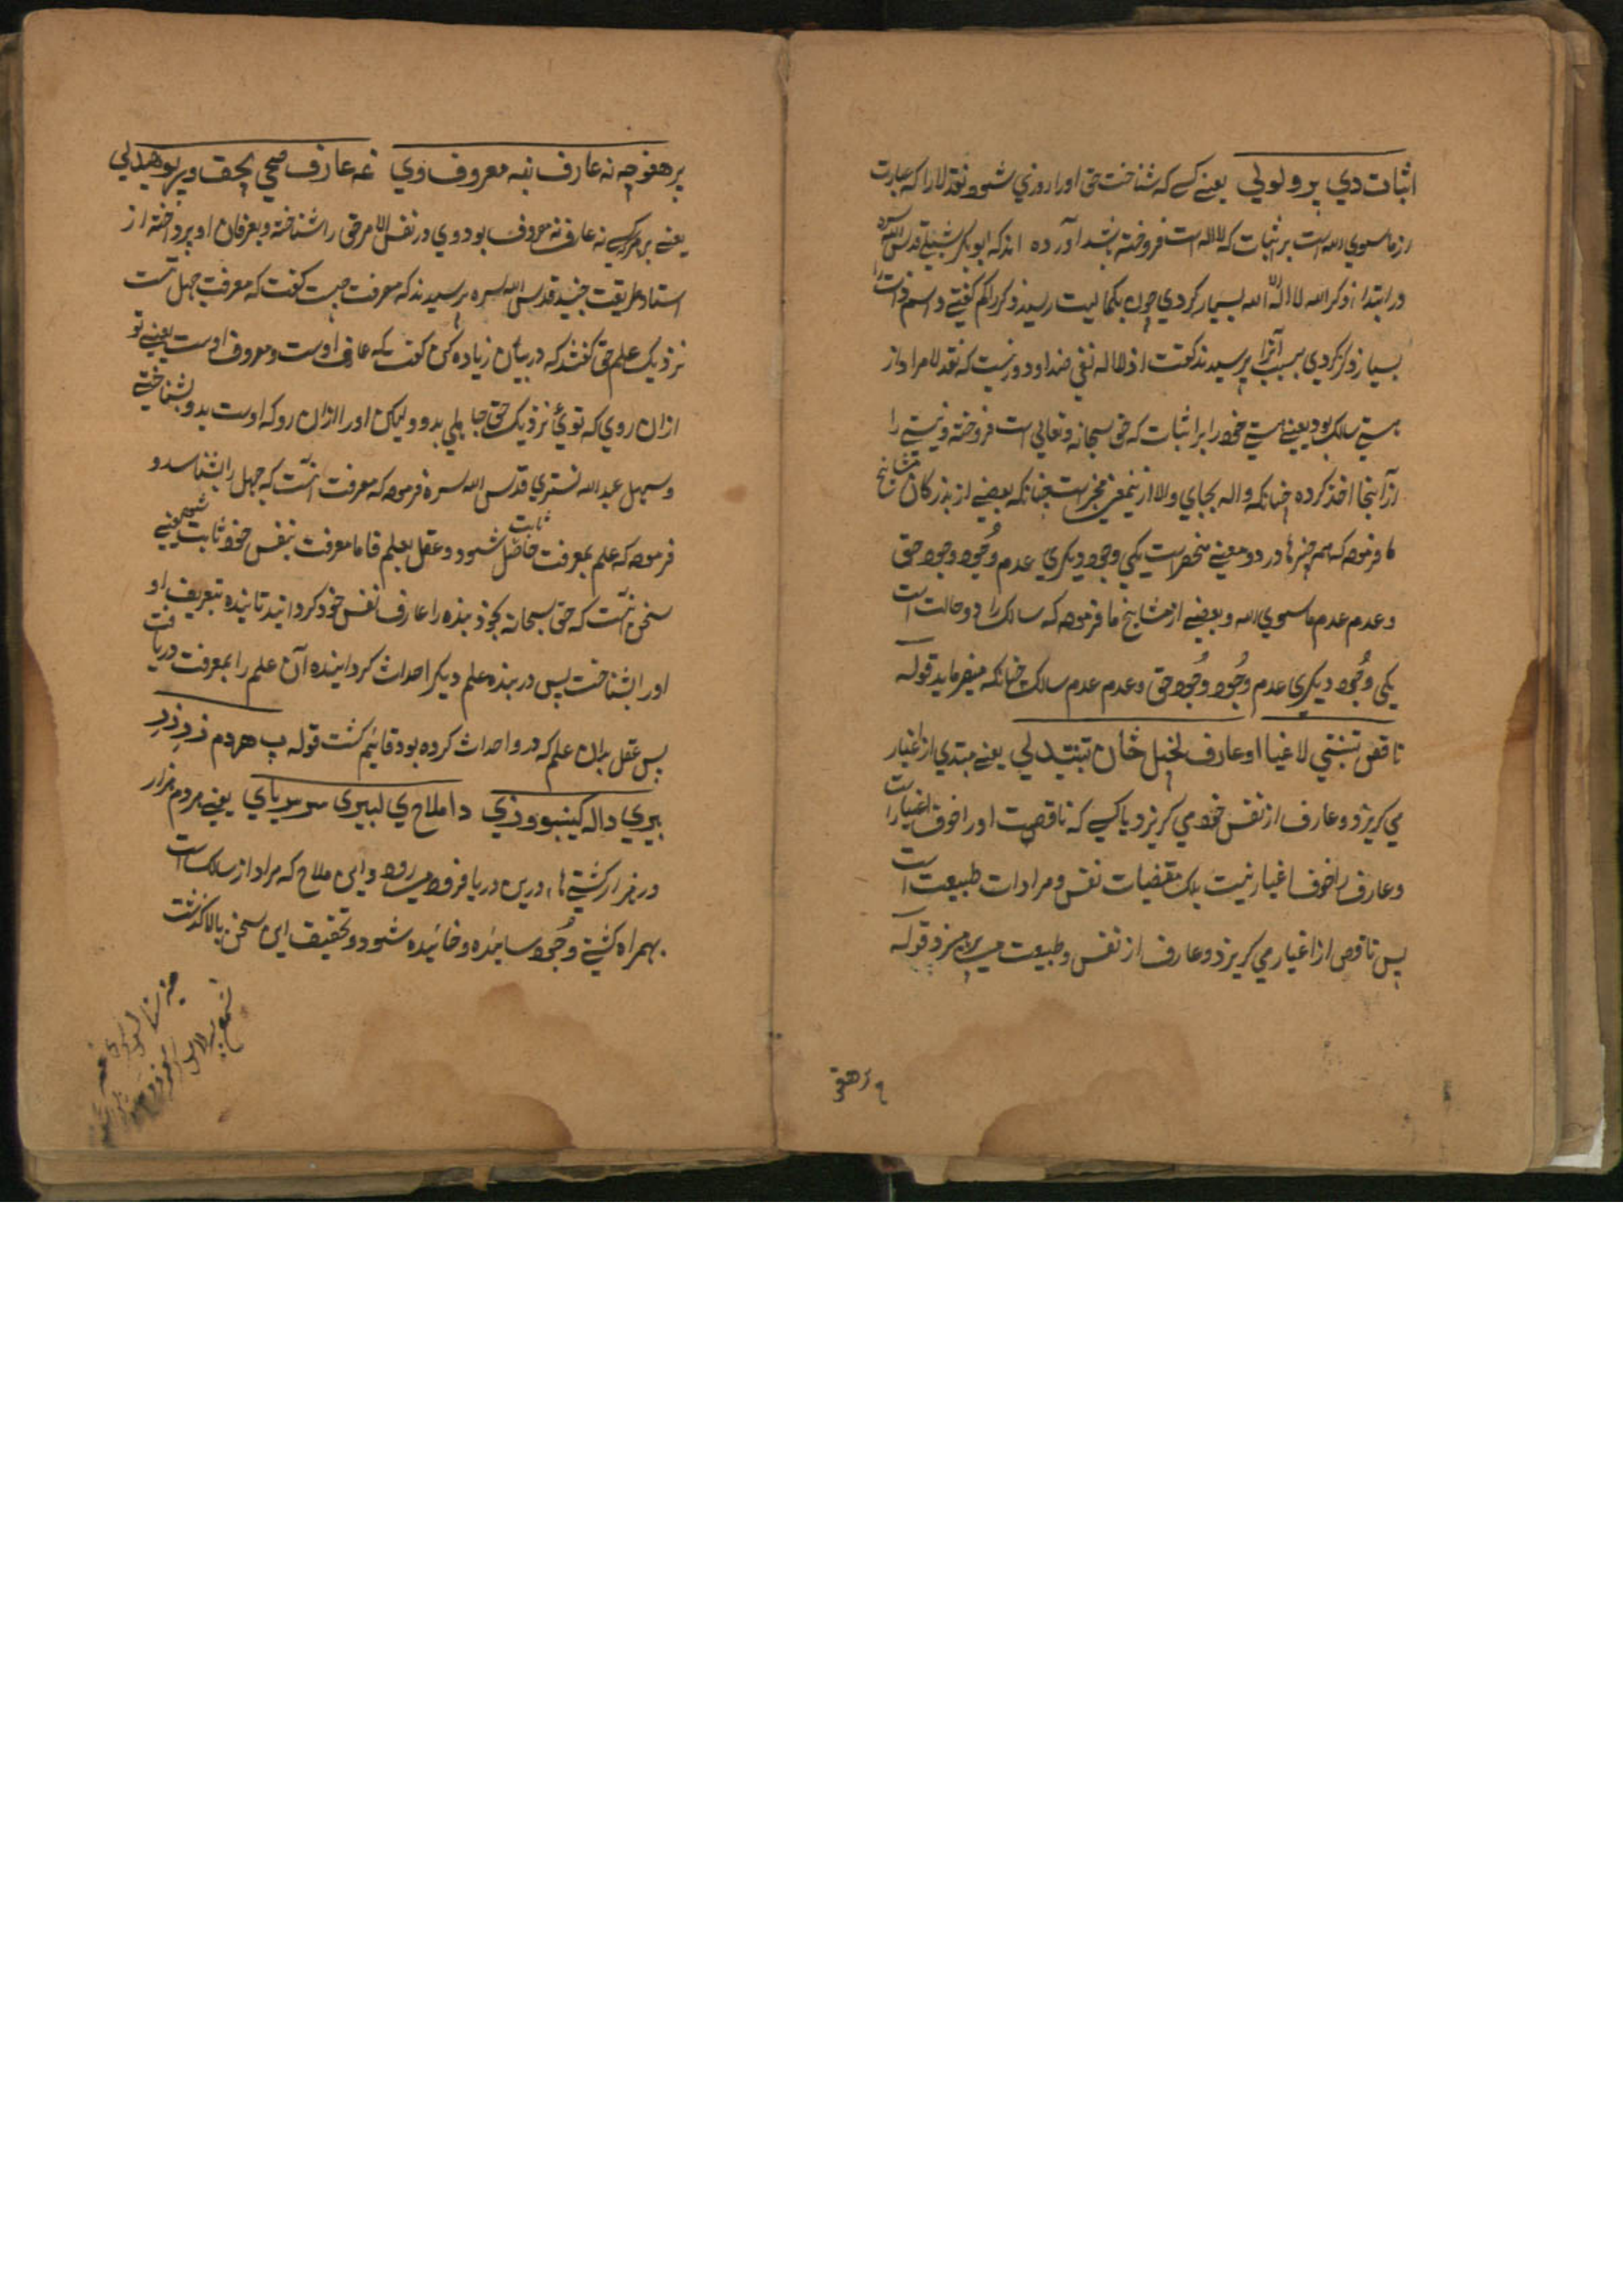 اثبات دي پرولولي يعنے کسے که شناخت حق اورا روزي شود نقد لا را که عبارت
از ماسوي الله است بر اثبات که الا الله است فروخته باشد آورده اند که ابوبکر شبلي قدس الله سره
در ابتدا ذکر الله لا اله الا الله بسيار کردي چون بکماليت رسيد ذکر را کم گفتے و اسم ذات را
بسيار ذکر کردي سبب آنرا پرسيدند گفت از لا اله نفي ضد او دور نيست که نقد لا مراد از
هستے سالک بود يعنے هستے خود را بر اثبات که حق سبحانه و تعالي است فروخته و نيستے را
از آنجا اخذ کرده چنانکه واله بجباي ولا ازينمعني مخبر است چنانکه بعضے از بزرکان مشايخ
ما فرموده که همه چيزها در دو معنے منحصر است يکي وجود ديکري عدم وجود وجود حق
و عدم عدم ماسوي الله و بعضے از مشايخ ما فرموده که سالک را دو حالت است
يکي وجود ديکري عدم وجود وجود حق و عدم عدم سالک چنانکه ميفرمايد قوله
ناقص تښتي لاغيا او عارف لخپل ځان تښتيدلي يعنے مبتدي از اغيار
مي کريزد و عارف از نفس خود مي کريزد يا کسے که ناقص است او را خوف اغيار است
و عارف را خوف اغيار نيست بلکه مقتضيات نفس و مرادات طبيعت است
پس ناقص از اغيار مي کريزد و عارف از نفس و طبيعت مي پرهيزد قوله
پر هغو چه نه عارف نه معروف وي غه عارف صحي بحق ور پوهيدلي
يعنے بر هر کسے نه عارف نه معروف بود وي در نفس الامر حق را شناخته و بعرفان او پرداخته از
استاد طريقت جنيد قدس الله سره پرسيدند که معرفت چيست گفت که معرفت جهل تست
نزديک علم حق گفتند که در بيان زياده کن گفت که عارف اوست و معروف اوست يعنے تو
ازان روي که توئي نزديک حق جاهلي بدو وليکن او را ازان رو که اوست بدو بشناختے
و سهل عبد الله تستري قدس الله سره فرموده که معرفت آنست که جهل را بشناسد و
فرموده که علم بمعرفت ثابت حاصل شود و عقل بعلم فاما معرفت بنفس خود ثابت شود يعنے
سخن آنست که حق سبحانه بخود بنده را عارف نفس خود کردانيد تا بنده بتعريف او
او را بشناخت پس در بنده علم ديکر احداث کرداننده آن علم را بمعرفت دريافت
پس عقل بدان علم که در و احداث کرده بود قائم کشت قوله پ هردم زر زر
بيري داله کښېووزي دا ملاح ي لبيړي سر سرياي يعنے هر دم هزار
در هزار کشتے ها درين دريا فرو ميرود و اين ملاح که مراد از سالک است
بهمراه کشتے وجود سائيده و خائيده شود و تحقيق اين سخن بالا کذشت
پر هغو